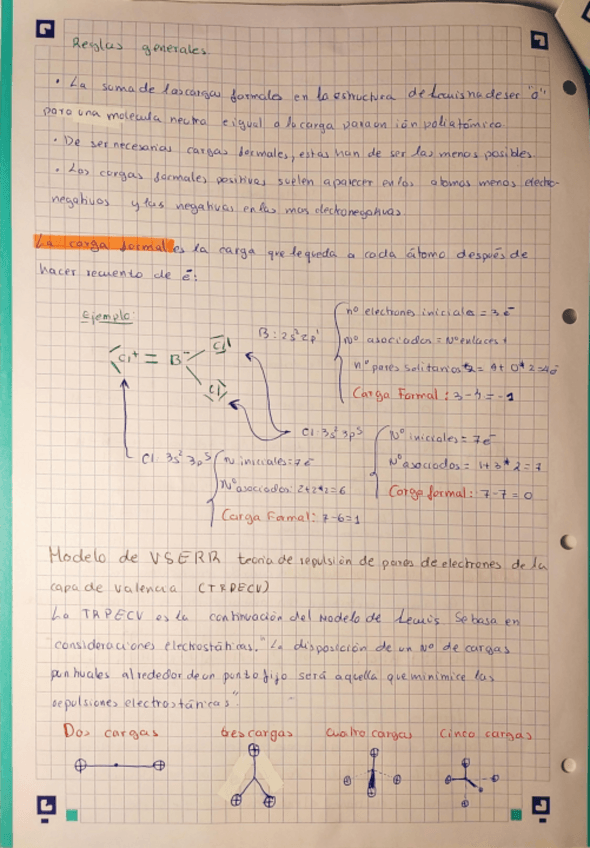 Reglas generales
· La suma de las cargas formales en la estructura de Lewis ha de ser "0"
para una molécula neutra e igual a la carga para un ión poliatómico.
· De ser necesarias cargas formales, estas han de ser las menos posibles.
· Las cargas formales positivas suelen aparecer en los atomos menos electro-
negativos y las negativas en los mas electronegativos
La carga formal es la carga que le queda a cada átomo después de
hacer recuento de ē:
Ejemplo:
Cl⁺ = B⁻
Cl
Cl
B: 2s² 2p¹
nº electrones iniciales = 3ē
nº asociados = Nº enlaces +
nº pares solitarios *2 = 4 + 0*2 = 4ē
Carga Formal: 3-4 = -1
Cl: 3s² 3p⁵
Nº iniciales = 7ē
Nº asociados = 1+3*2 = 7
Carga formal: 7-7=0
Cl: 3s² 3p⁵
N iniciales = 7ē
Nº asociados: 2+2*2=6
Carga Formal: 7-6=1
Modelo de VSERR teoria de repulsión de pares de electrones de la
capa de valencia (TRPECV)
La TRPECV es la continuación del Modelo de Lewis. Se basa en
consideraciones electrostáticas. "La disposición de un Nº de cargas
puntuales alrededor de un punto fijo será aquella que minimice las
repulsiones electrostánicas".
Dos cargas tres cargas cuatro cargas Cinco cargas